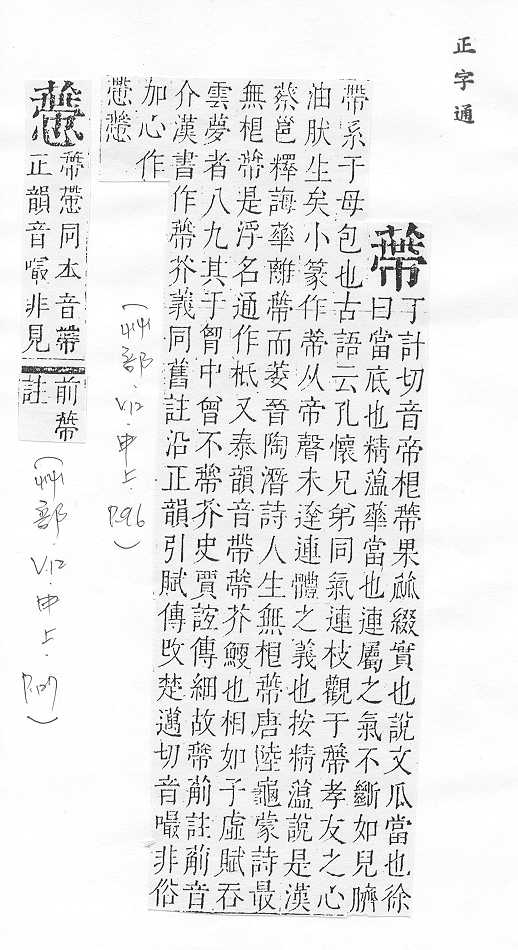 正字通
蔕
丁計切音帝根蔕果蓏綴實也說文瓜當也徐
曰當底也精薀華當也連屬之氣不斷如兒臍
帶系于母包也古語云孔懷兄弟同氣連枝觀于蔕孝友之心
油肰生矣小篆作蒂从帝聲未逹連體之義也按精薀說是漢
蔡邕釋誨華離蔕而萎晉陶潛詩人生無根蔕唐陸龜蒙詩最
無根蔕是浮名通作柢又泰韻音帶蔕芥鯁也相如子虛賦吞
雲夢者八九其于胷中曾不蔕芥史賈誼傳細故蔕葪註葪音
介漢書作蔕芥義同舊註沿正韻引賦傳攺楚邁切音嘬非俗
加心作
懘
蔕懘同本音蔕
正韻音嘬非見
前蔕
註
(艸部.V.12.申上.P.96)
(艸部.V.12.申上.P.127)